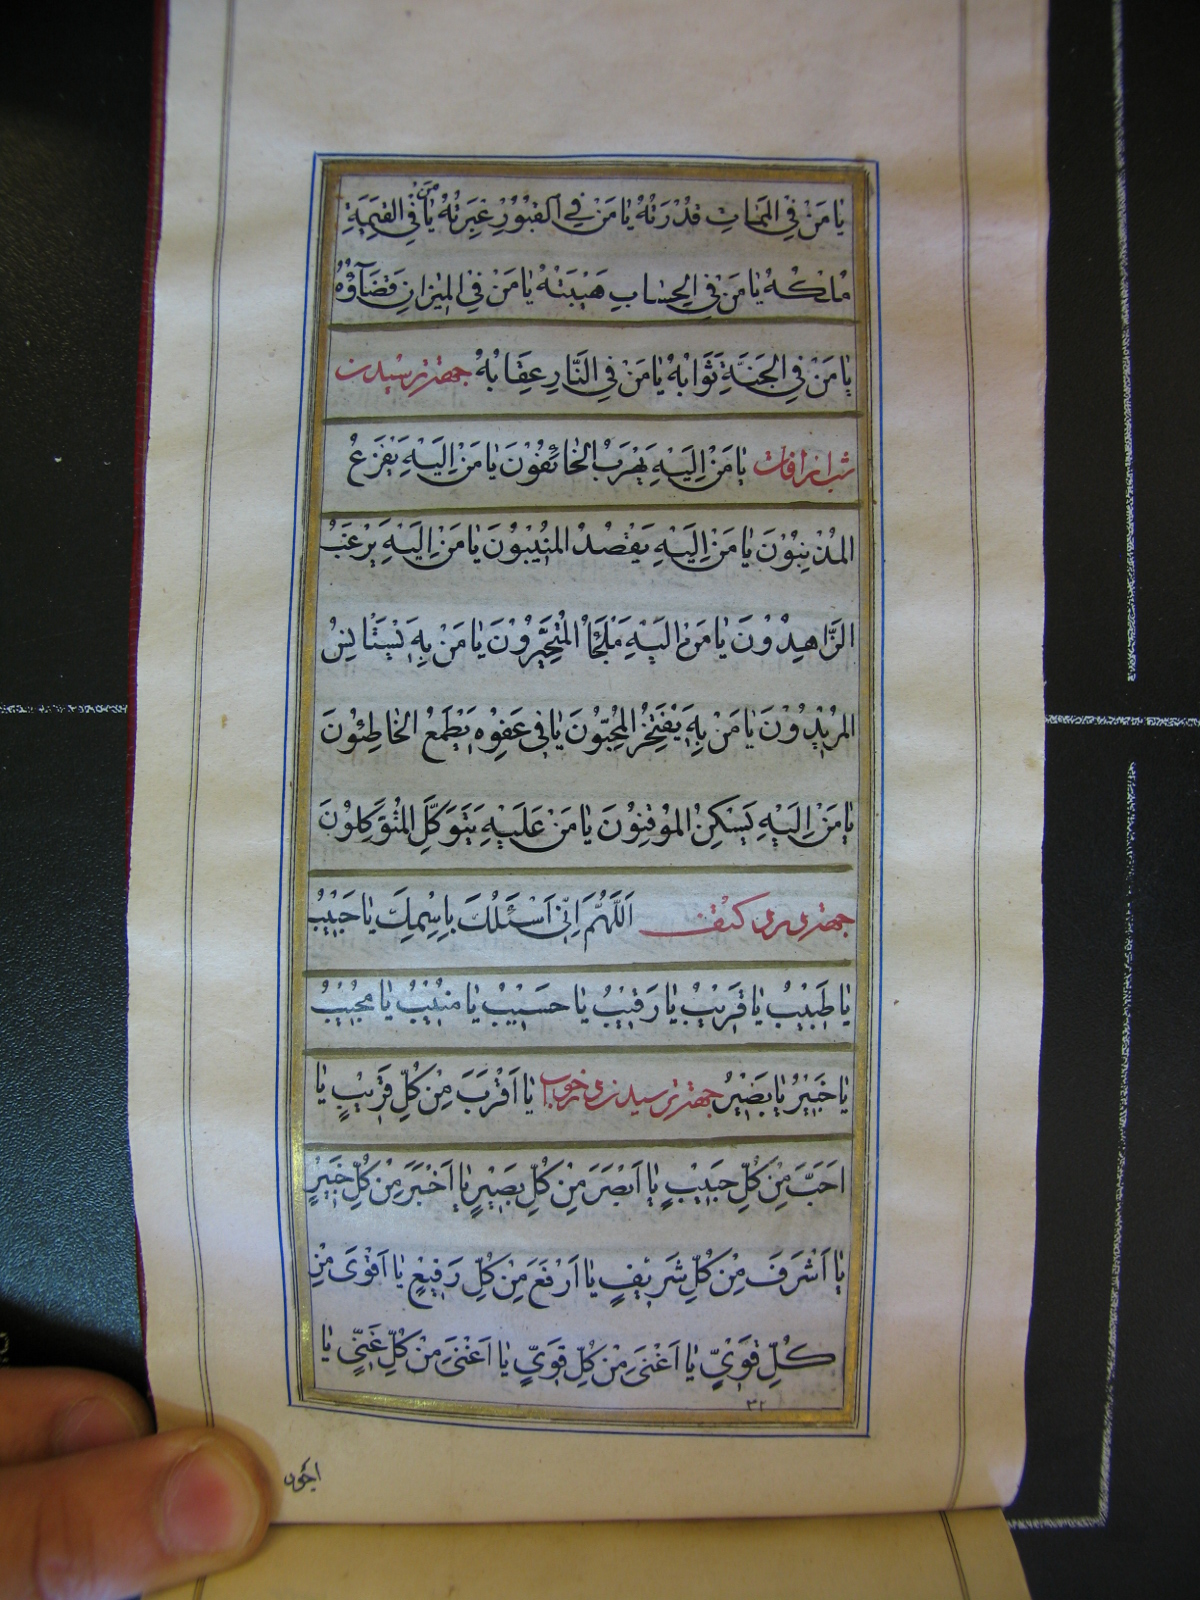 يٰا مَنْ فِي المَمٰاتِ قُدْرَتُهُ يٰا مَنْ فِي القُبُورِ عِبْرَتُهُ يٰا مَنْ فِي القِيٰمَةِ
مُلْكُهُ يٰا مَنْ فِي الحِسٰابِ هَيْبَتُهُ يٰا مَنْ فِي المِيْزانِ قَضَآؤُهُ
يٰا مَنْ فِي الجَنَّةِ ثَوَابُهُ يٰا مَنْ فِي النَّارِ عِقٰابُهُ جهة ترسيدن
شب از آفات يٰا مَنْ اِلَيْهِ يَهْرَبُ الخٰائِفُوْنَ يٰا مَنْ اِلَيْهِ يَفْزَعُ
المُذْنِبُوْنَ يٰا مَنْ اِلَيْهِ يَقْصُدُ المُنِيْبُوْنَ يٰا مَنْ اِلَيْهِ يَرْغَبُ
الزَّاهِدُوْنَ يٰا مَنْ اِلَيْهِ مَلْجَأُ المُتَحَيِّرُوْنَ يٰا مَنْ بِهِ يَسْتَانِسُ
المُرِيْدُوْنَ يٰا مَنْ بِهِ يَفْتَخِرُ المُحِبُّوْنَ يٰا فِي عَفْوِهِ يَطْمَعُ الخٰاطِئُوْنَ
يٰا مَنْ اِلَيْهِ يَسْكُنُ المُوْقِنُوْنَ يٰا مَنْ عَلَيْهِ يَتَوَكَّلُ المُتَوَكِّلُوْنَ
جهة اَللّٰهُمَّ اِنِّي اَسْئَلُكَ بِاسْمِكَ يٰا حَبِيْبُ
يٰا طَبِيْبُ يٰا قَرِيْبُ يٰا رَقِيْبُ يٰا حَسِيْبُ يٰا مُنِيْبُ يٰا مُجِيْبُ
يٰا خَبِيْرُ يٰا بَصِيْرُ جهة يٰا اَقْرَبَ مِنْ كُلِّ قَرِيْبٍ يٰا
اَحَبَّ مِنْ كُلِّ حَبِيْبٍ يٰا اَبْصَرَ مِنْ كُلِّ بَصِيْرٍ يٰا اَخْبَرَ مِنْ كُلِّ خَبِيْرٍ
يٰا اَشْرَفَ مِنْ كُلِّ شَرِيْفٍ يٰا اَرْفَعَ مِنْ كُلِّ رَفِيْعٍ يٰا اَقْوٰى مِنْ
كُلِّ قَوِيٍّ يٰا اَغْنٰى مِنْ كُلِّ قَوِيٍّ يٰا اَغْنٰى مِنْ كُلِّ غَنِيٍّ يٰا
٣٢
اجود